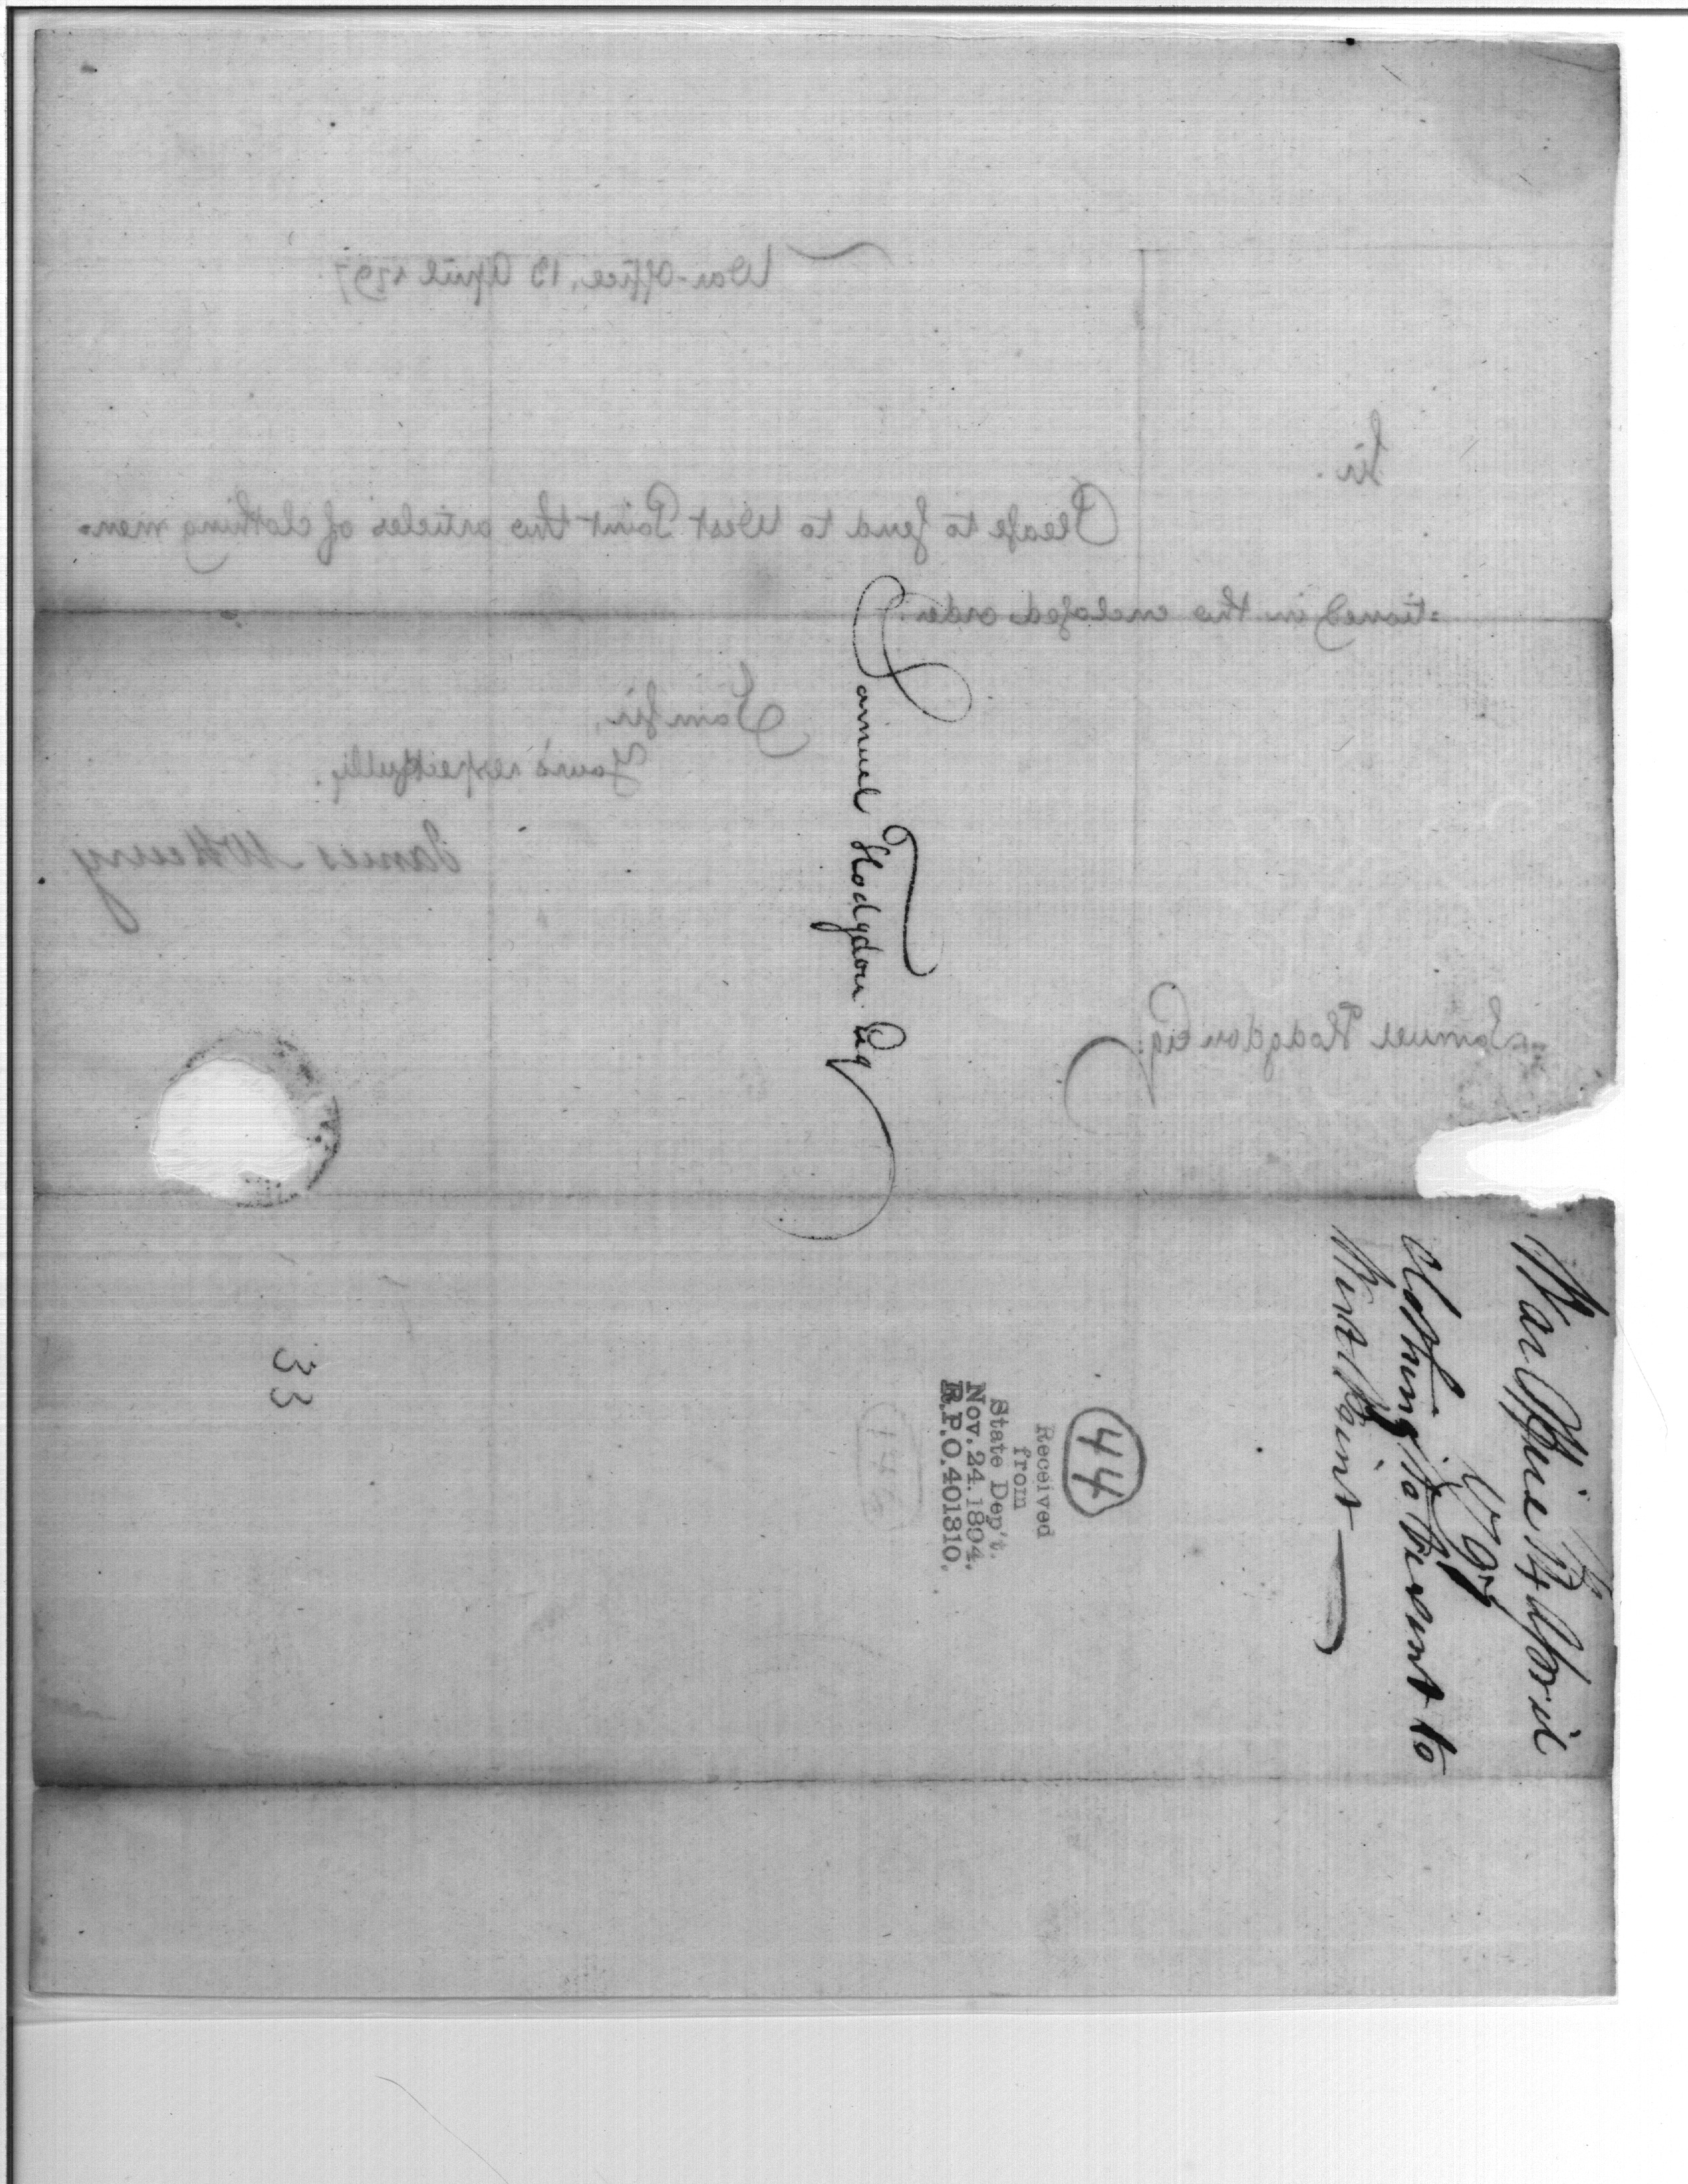 War-office, 13 April 1797
Sir.
Please to send to West Point the articles of clothing men-
=tioned in the enclosed order.
I am Sir,
Yours respectfully,
James McHenry
Samuel Hodgdon Esq.
Samuel Hodgdon Esq
War Office 13 April
1797
Clothing to be sent to
West Point
44
Received
from
State Dep't.
Nov. 24. 1894.
R.P.O. 401310.
33